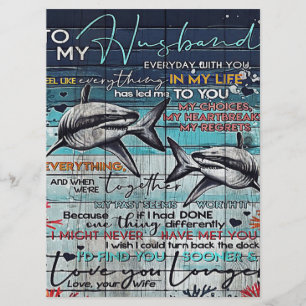 TO MY Husband
EVERYDAY WITH YOU,
FEEL LIKE everything IN MY LIFE
has led me TO YOU
MY CHOICES,
MY HEARTBREAK
MY REGRETS
EVERYTHING,
AND WHEN WE'RE together
MY PAST SEEMS WORTH IT
Because if I had DONE
one thing differently
I MIGHT NEVER HAVE MET YOU
I wish I could turn back the clock
I'D FIND YOU SOONER &
Love you Longer
Love, your Wife